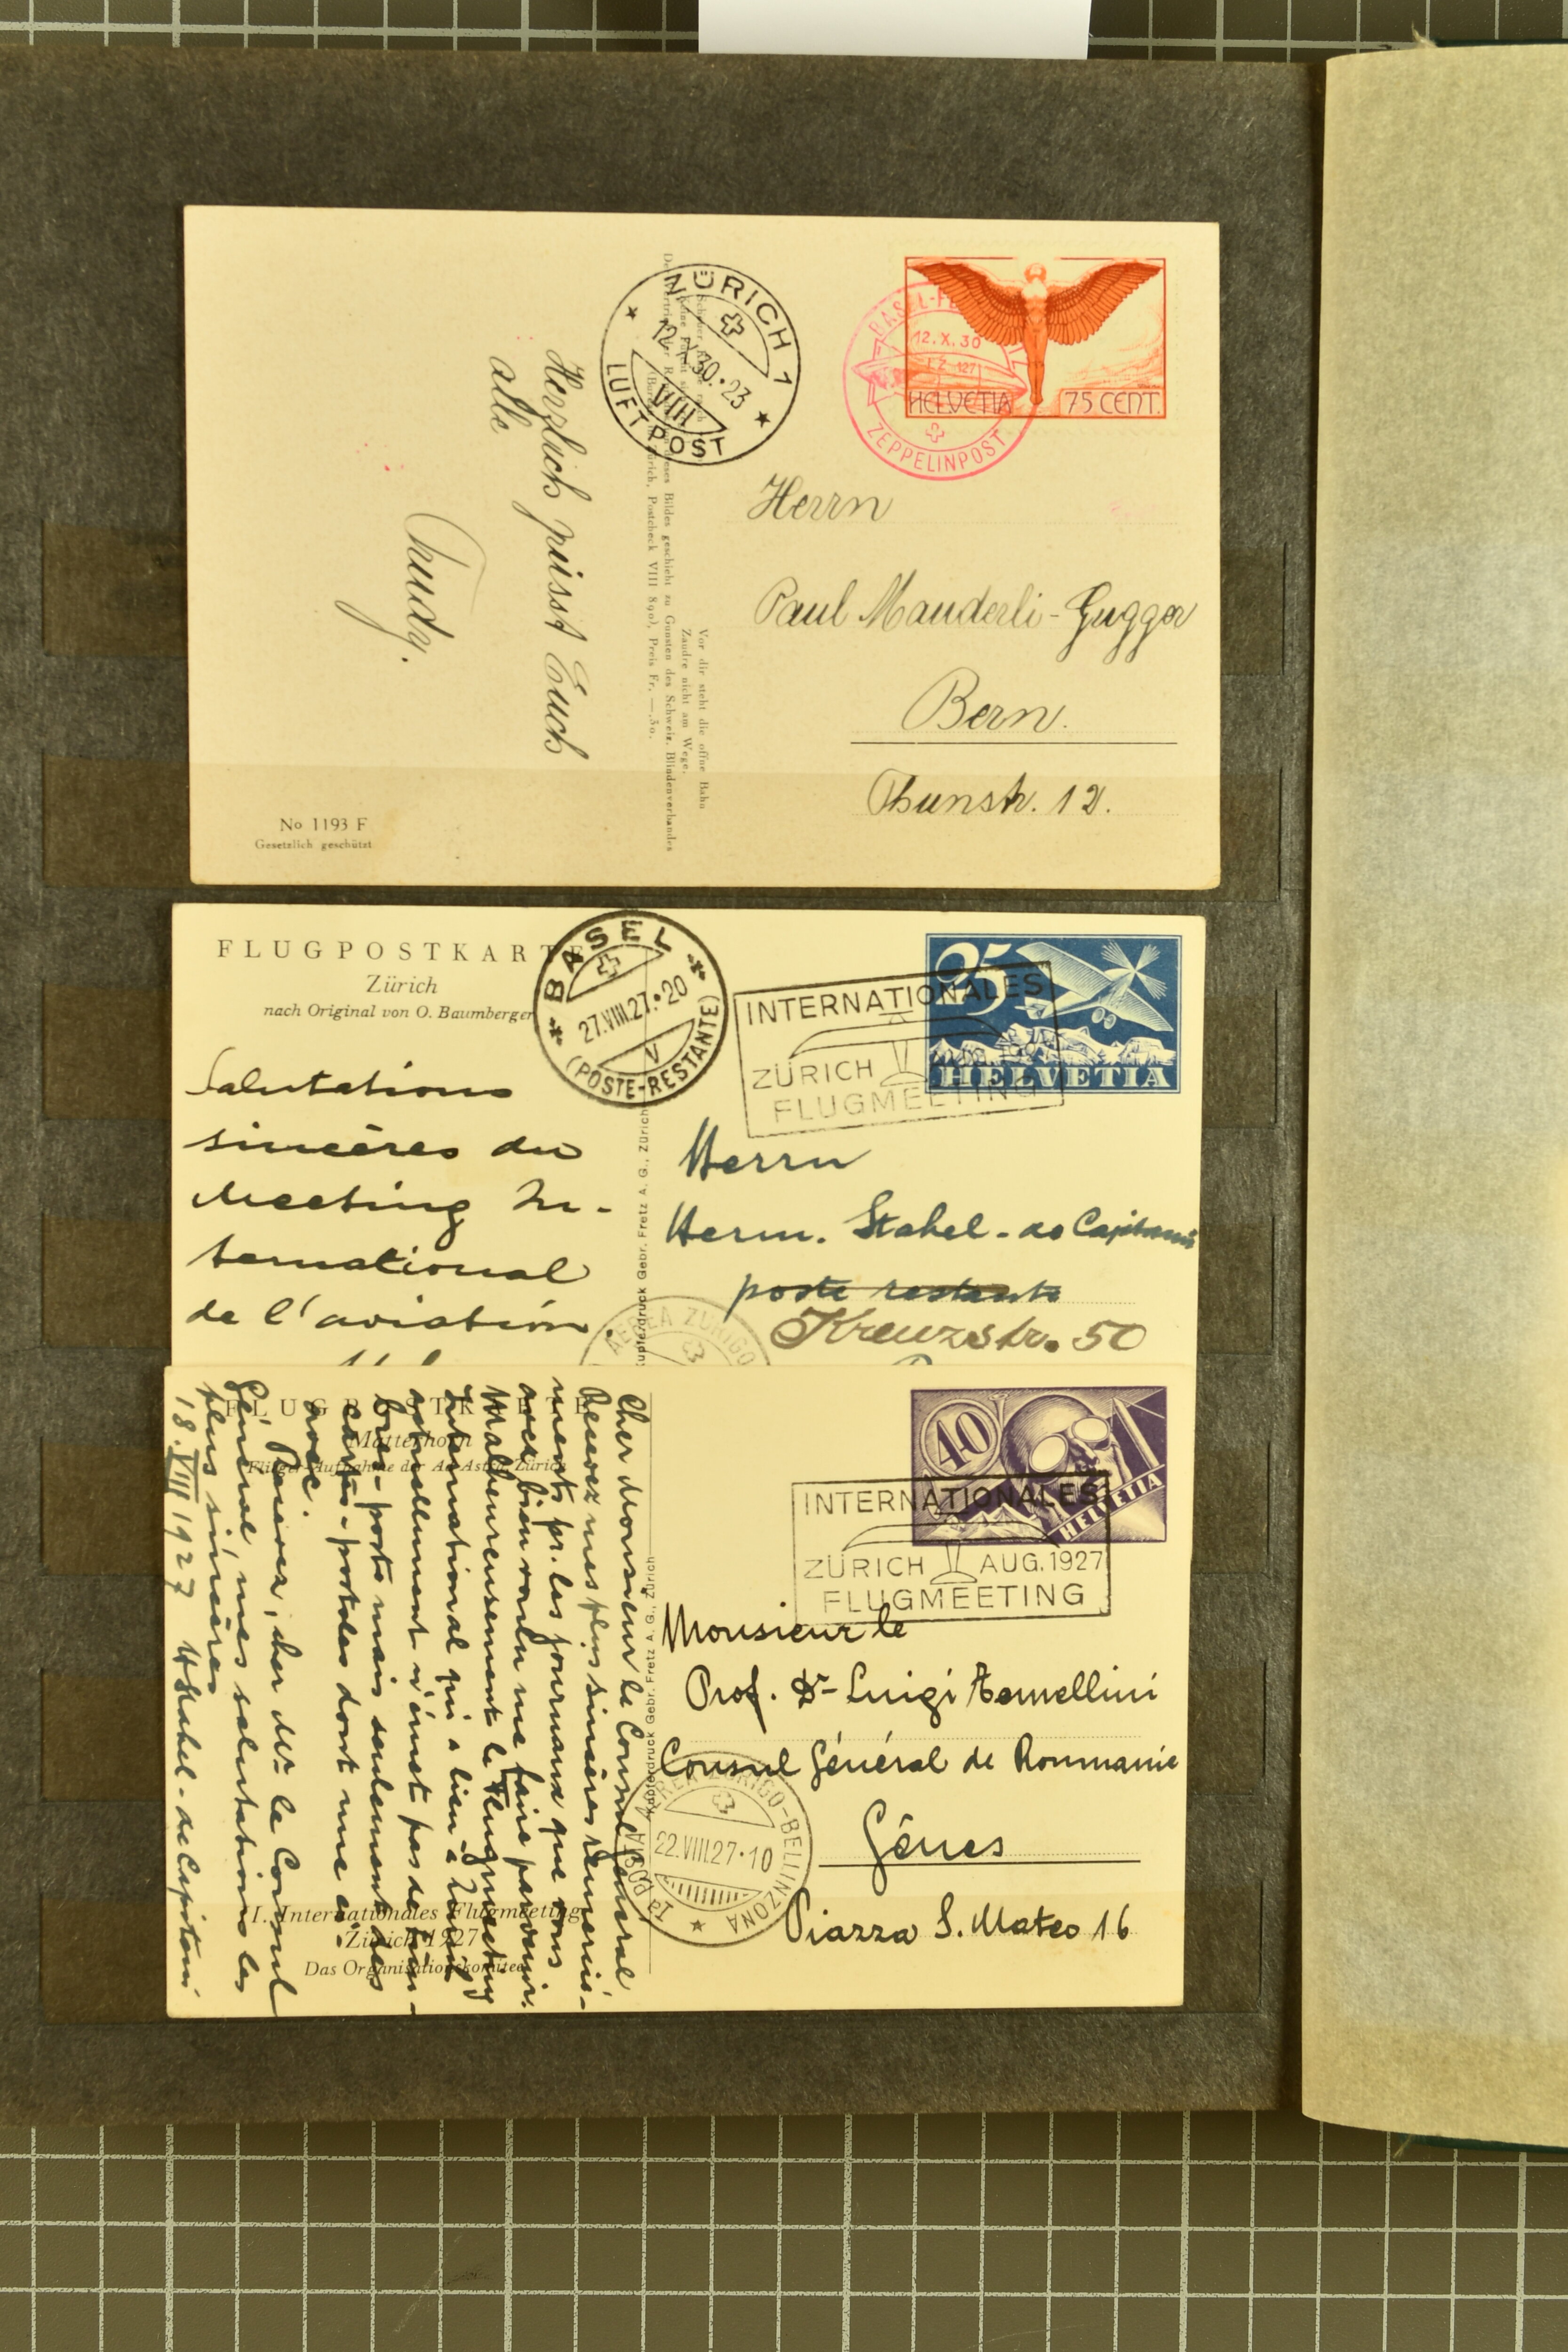 ZÜRICH 1
12.X.30·23
VIII
LUFTPOST
12.X.30
LZ 127
ZEPPELINPOST
HELVETIA
75 CENT.
Herrn
Paul Manderli-Gugger
Bern.
Thunstr. 12.
Vor dir steht die offne Bahn
Zaudre nicht am Wege.
Bildes geschieht zu Gunsten des Schweiz. Blindenverbandes
Zürich, Postcheck VIII 890), Preis Fr. —.30.
Herzlich grüsst Euch
alle
Trudy.
No 1193 F
Gesetzlich geschützt
FLUGPOSTKARTE
Zürich
nach Original von O. Baumberger
BASEL
27.VIII.27.·20
V
(POSTE-RESTANTE)
INTERNATIONALES
ZÜRICH
FLUGMEETING
35
HELVETIA
Salutations
sincères du
Meeting In-
ternational
de l'aviation.
Kupferdruck Gebr. Fretz A. G., Zürich
Herrn
Herm. Stahel-de Capitani
poste restante
Kreuzstr. 50
AEREA ZURIGO
FLUGPOSTKARTE
Matterhorn
Flieger-Aufnahme der Ad Astra, Zürich
40
HELVETIA
INTERNATIONALES
ZÜRICH AUG. 1927
FLUGMEETING
Cher Monsieur le Consul Général
Recevez mes plus sincères remercie-
ments pr. les journaux que vous
avez bien voulu me faire parvenir.
Malheureusement le Flugmeeting
International qui a lieu à Zürich
actuellement n'émet pas de tim-
bres-poste mais seulement des
cartes-postales dont une ci-
avec.
Recevez, cher Mr. le Consul
Général, mes salutations les
plus sincères
18.VIII 1927 HStahel-de Capitani
Kupferdruck Gebr. Fretz A. G., Zürich
Monsieur le
Prof. Dr Luigi Tomellini
Consul Général de Roumanie
Gênes
Piazza S. Mateo 16
Ia POSTA AEREA ZURIGO-BELLINZONA
22.VIII.27·10
I. Internationales Flugmeeting
Zürich 1927
Das Organisationskomitee